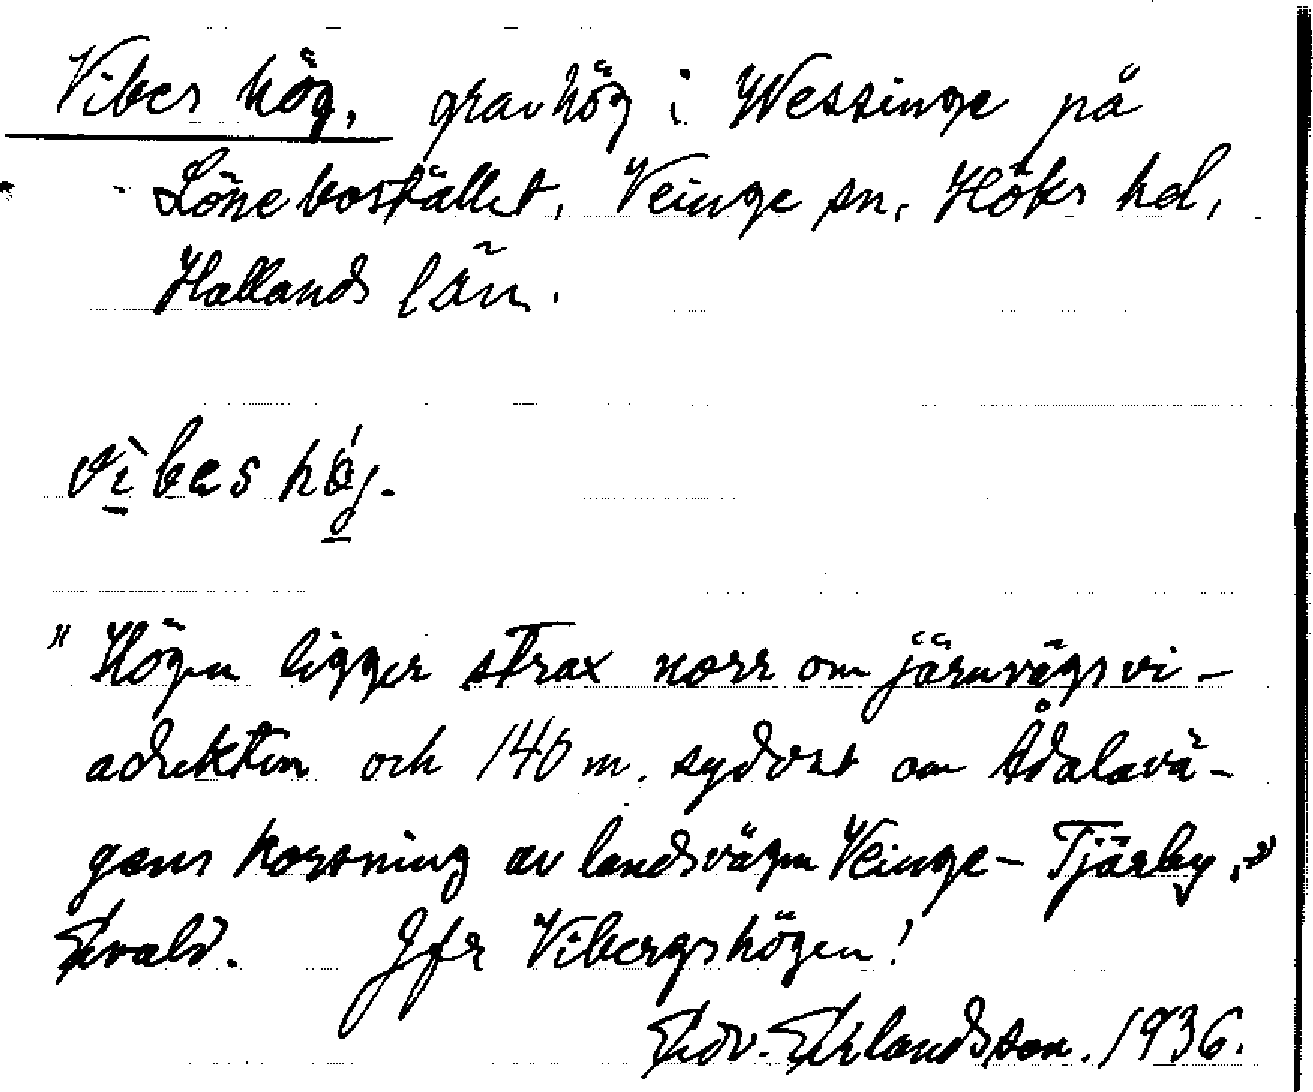 Vibes hög, gravhög i Wessinge på
Lönebostället, Veinge sn, Höks hd,
Hallands län.
vìbes hǿg.
"Högen ligger strax norr om järnvägsvi-
adukten och 140 m. sydost om Ådalavä-
gens korsning av landsvägen Veinge-Tjärby."
Evald. Jfr Vibergshögen!
Edv. Erlandsson. 1936.